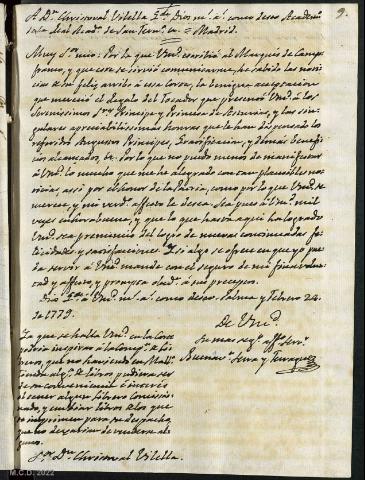 9.
A Dn. Christoval Vilella Gde. Dios ms. as. como deseo Academo.
de la Real Acada. de San Ferndo. &a. = Madrid.
Muy Sor. mio: Por lo que Vmd. escribió al Marqués de Camp-
franco, y que este se sirvió comunicarme, he sabido las noti-
cias de su feliz arribo a esa Corte, la benigna aceptacion
que mereció el regalo del tocador que presentó Vmd. a los
Serenisimos Sres. Principe y Princesa de Asturias, y las sin-
gulares apreciabilissimas honras que le han dispensado los
referidos Augustos Principes, Gratificacion, y demas benefi-
cios alcanzados, &a. Por lo que no puedo menos de manifestar
a Vmd. lo mucho que me he alegrado con tan plausibles no-
ticias, assi por el honor de la Patria, como por lo que Vmd. se
merece, y mi verdo. affecto le desea. Sea pues a Vmd. mil
veces enhorabuena, y que lo que hasta aqui ha logrado
Vmd. sea premicia del logro de nuevas continuadas fe-
licidades y satisfacciones. Y si algo se ofrece en que yo pue-
da servir a Vmd. mande con el seguro de mi fina volun-
tad y affecto, y prompta obeda. a sus preceptos.
Dios gue. a Vmd. ms. as. como deseo. Palma y Febrero 24.
de 1779.
De Vmd.
Su mas segº. affto. Servr.
Buenava. Serra y Ferragut
Ya que se halla Vmd. en la Corte
podria inspirar a la
que no haviendo en Mall.
de libros pudiera ser
de su conveniencia è interés
el tener alguna libreria
y embiar libros de los que
se imprimen para su despacho,
que no dexarian de venderse al-
gunos.
Sor. Dn. Christoval Vilella.
M.C.D. 2022